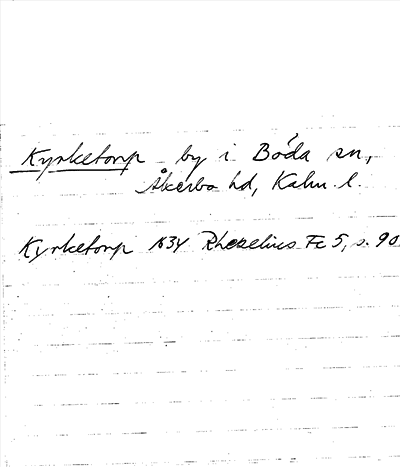 Kyrketorp by i Böda sn,
Åkerbo hd, Kalm. l.
Kyrketorp 1634 Rhezelius Fc 5, s. 90